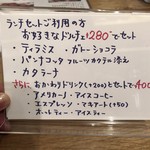 ランチセットご利用の方
お好きなドルチェ+280円でセット
・ティラミス ・ガトーショコラ
・パンナコッタ フルーツカクテル添え
・カタラーナ
さらに おかわりドリンク(+200)とセットで400
・アメリカーノ ・アイスコーヒー
・エスプレッソ ・マキアート(+50)
・ホットティー ・アイスティー